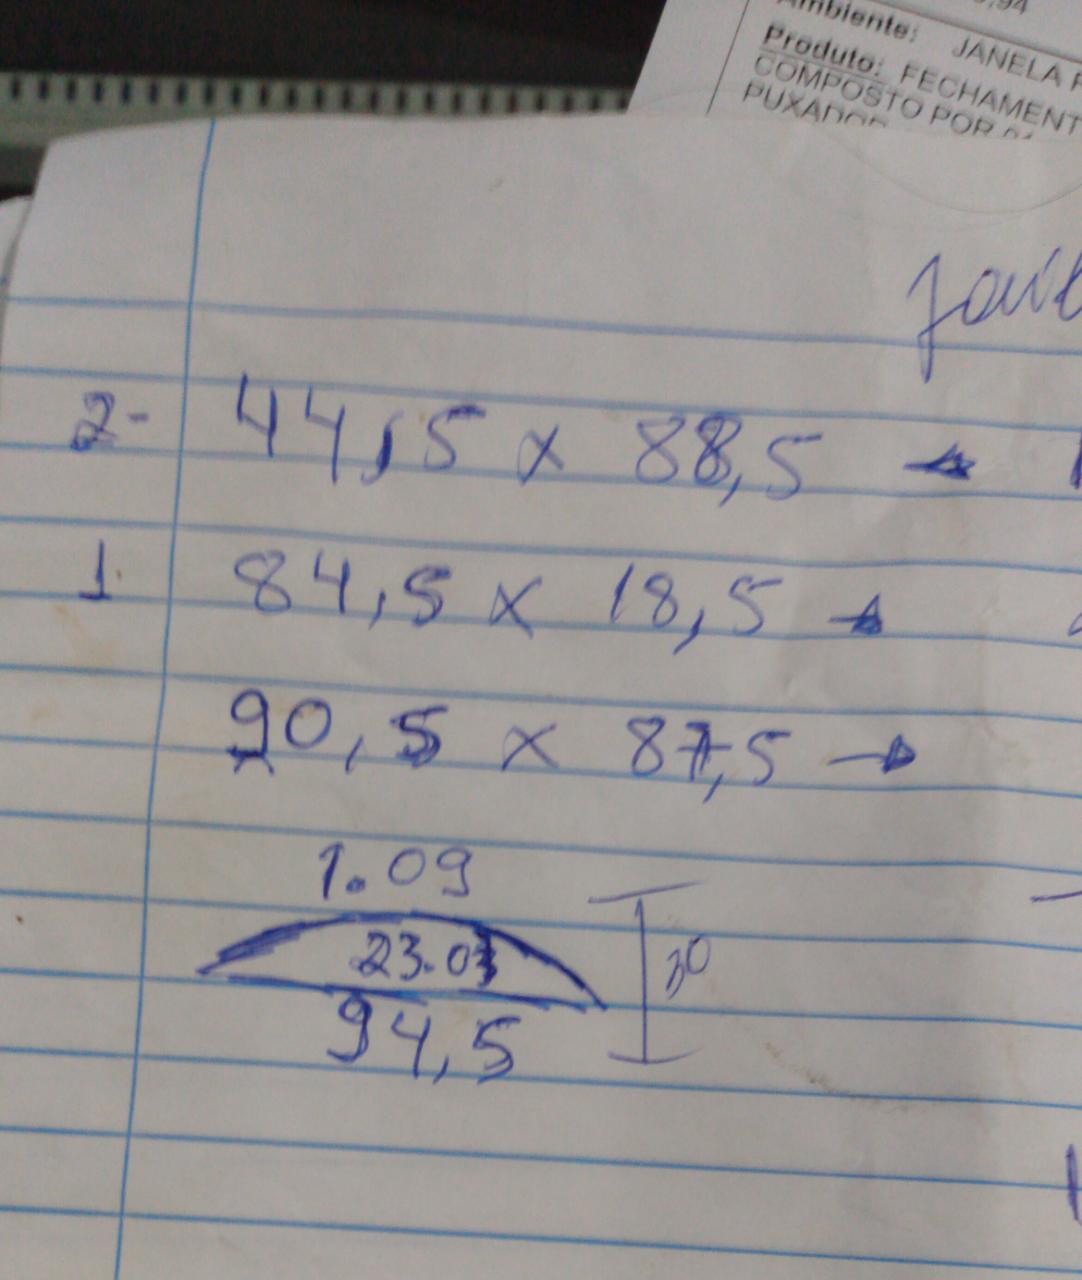 ,94
Ambiente: JANELA
Produto: FECHAMENT
COMPOSTO POR
PUXADOR
2- 44,5 x 88,5 →
1 84,5 x 18,5 →
90,5 x 87,5 →
1.09
23.03
30
94,5